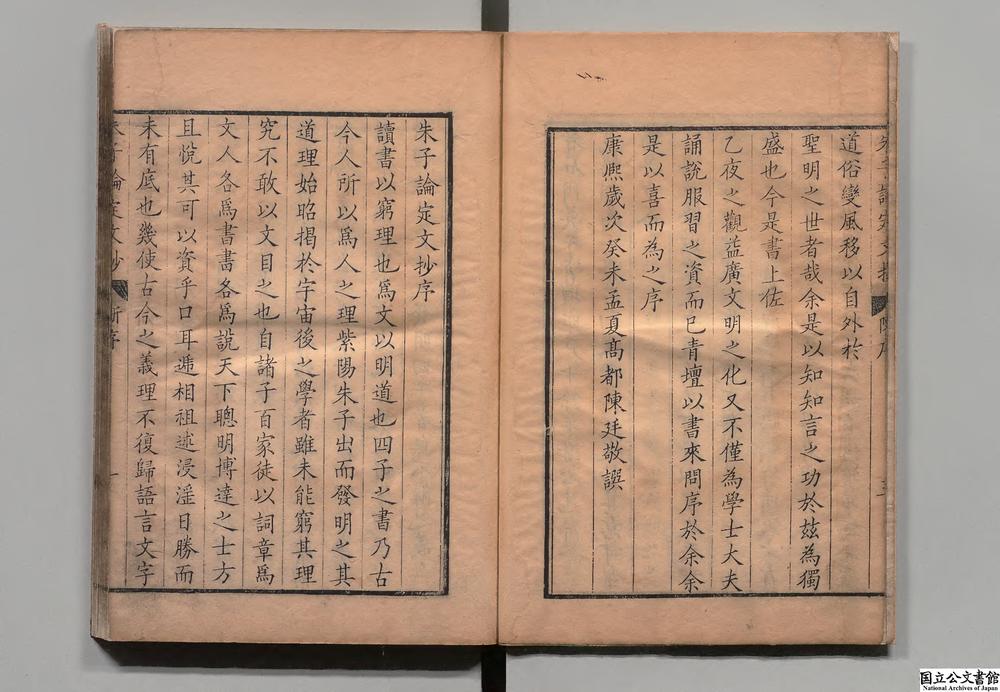 道俗變風移以自外於
聖明之世者哉余是以知知言之功於玆為獨
盛也今是書上佐
乙夜之觀益廣文明之化又不僅為學士大夫
誦說服習之資而已青壇以書來問序於余余
是以喜而為之序
康熙歲次癸未孟夏高都陳廷敬譔
朱子論定文抄序
讀書以窮理也爲文以明道也四子之書乃古
今人所以爲人之理紫陽朱子出而發明之其
道理始昭揭於宇宙後之學者雖未能窮其理
究不敢以文目之也自諸子百家徒以詞章爲
文人各爲書書各爲說天下聰明博達之士方
且悅其可以資乎口耳遞相祖述浸淫日勝而
未有底也幾使古今之義理不復歸語言文字
朱子論定文抄
序
一
国立公文書館
National Archives of Japan